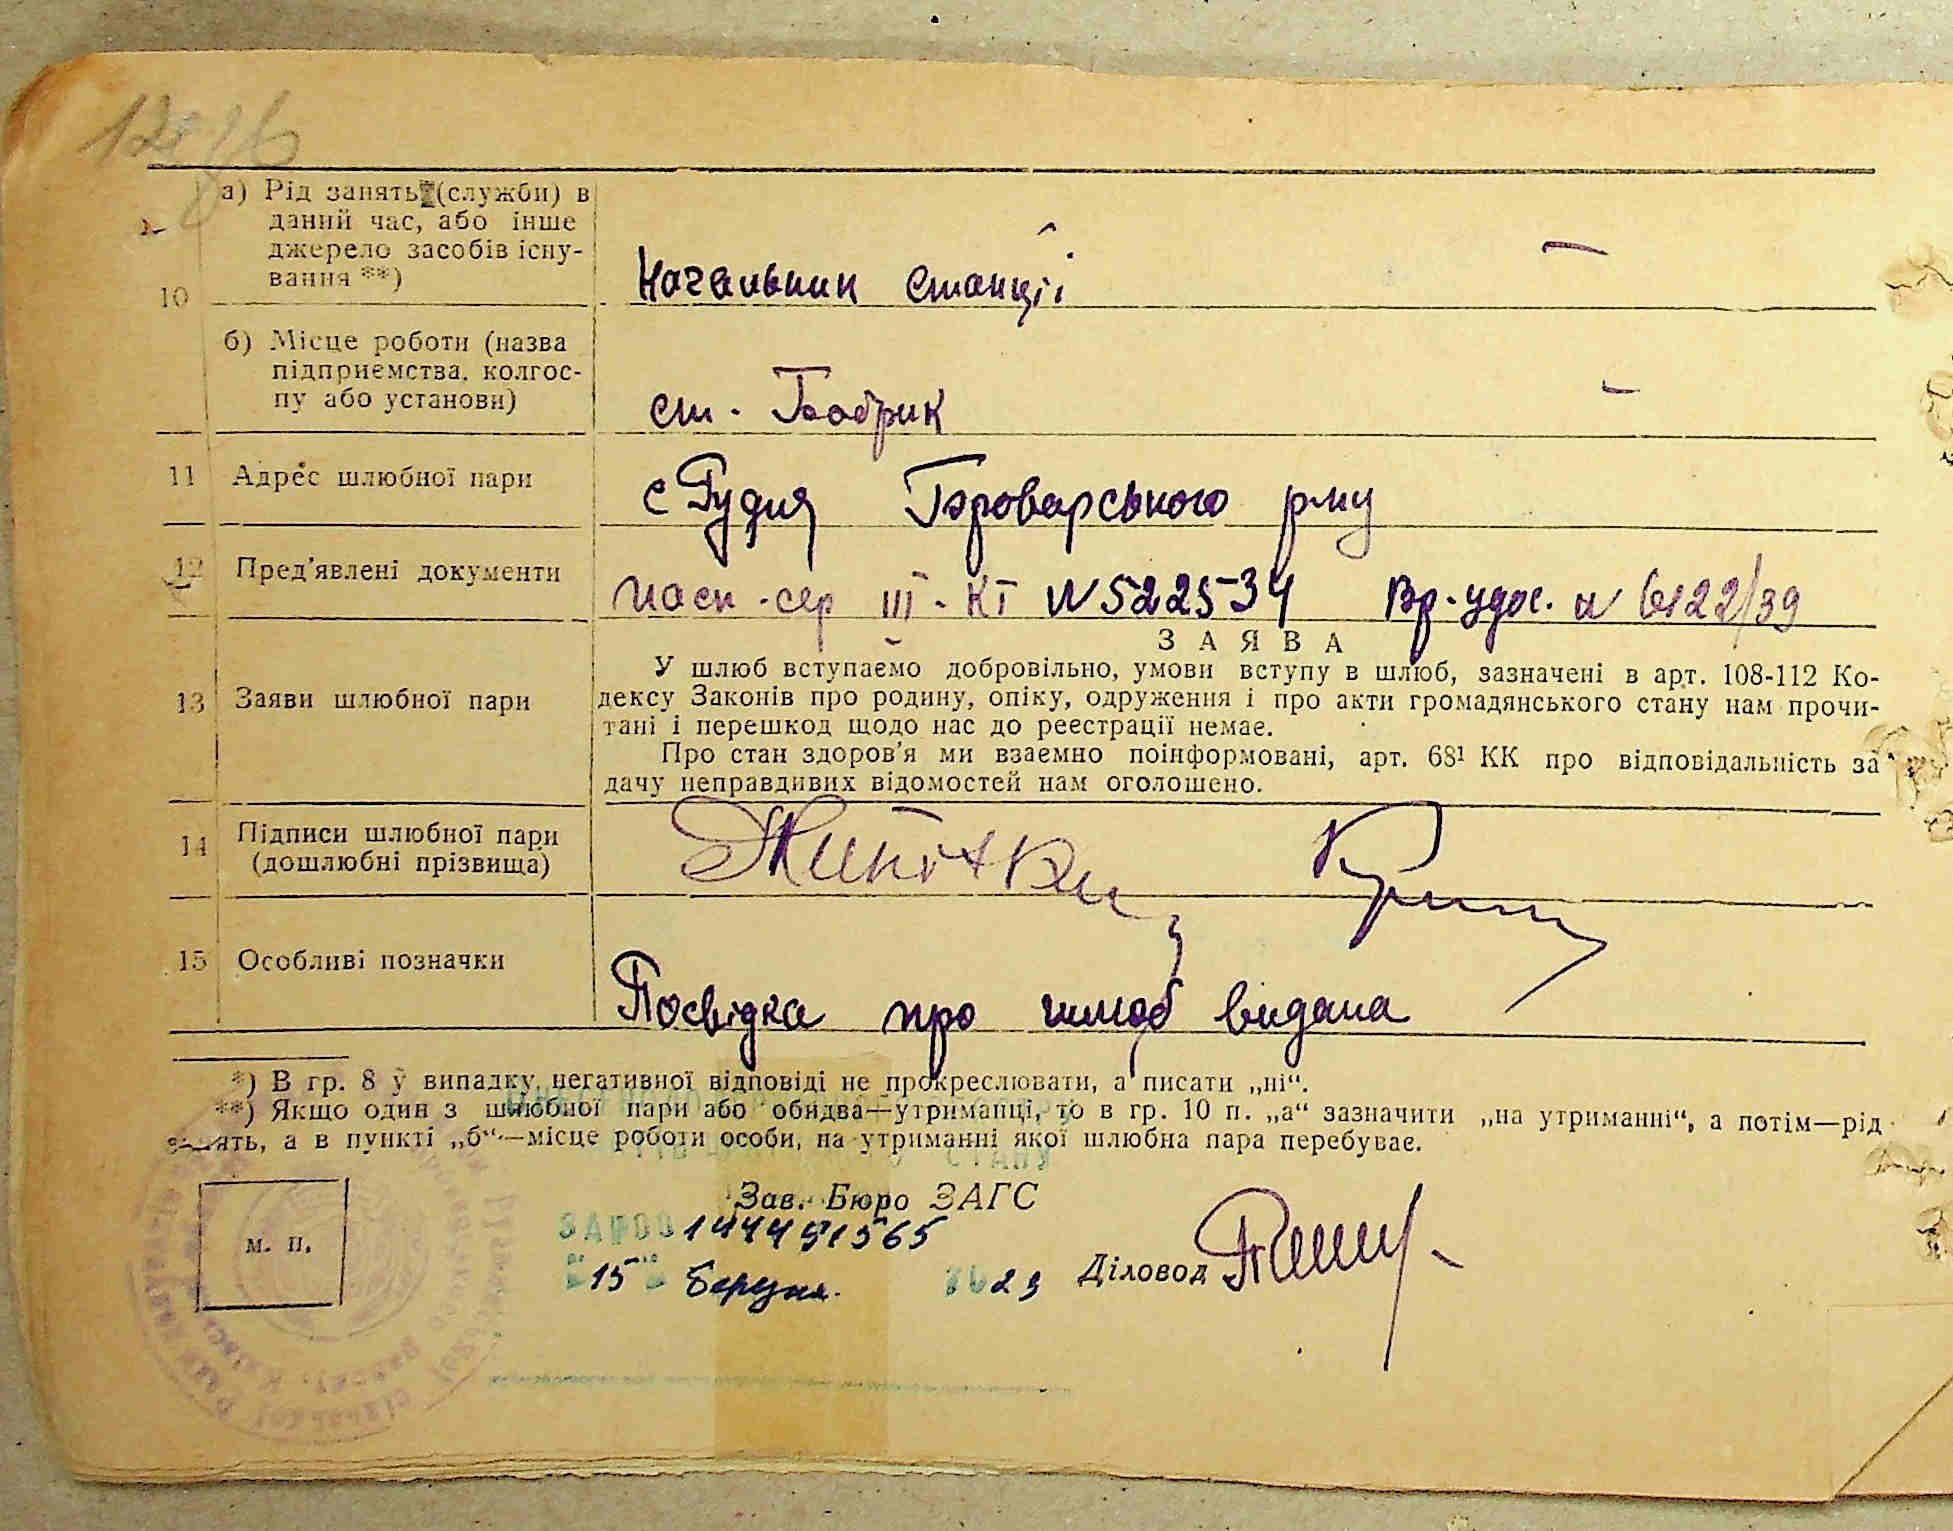 10
а) Рід занять (служби) в
даний час, або інше
джерело засобів існу-
вання **)
Начальник станції
б) Місце роботи (назва
підприємства, колгос-
пу або установи)
ст. Бобрик
11 Адрес шлюбної пари
с Рудня Броварського р-ну
12 Пред'явлені документи
пасп. сер III-КТ N 522534 Вр. удос. N 6122/39
ЗАЯВА
13 Заяви шлюбної пари
У шлюб вступаємо добровільно, умови вступу в шлюб, зазначені в арт. 108-112 Ко-
дексу Законів про родину, опіку, одруження і про акти громадянського стану нам прочи-
тані і перешкод щодо нас до реестрації немає.
Про стан здоров'я ми взаємно поінформовані, арт. 68¹ КК про відповідальність за
дачу неправдивих відомостей нам оголошено.
14 Підписи шлюбної пари
(дошлюбні прізвища)
15 Особливі позначки
Посвідка про шлюб видана
*) В гр. 8 у випадку негативної відповіді не прокреслювати, а писати „ні“.
**) Якщо один з шлюбної пари або обидва—утриманці, то в гр. 10 п. „а“ зазначити „на утриманні“, а потім—рід
занять, а в пункті „б“—місце роботи особи, на утриманні якої шлюбна пара перебуває.
СТАНУ
Зав. Бюро ЗАГС
М. П.
15 Березня 23
Діловод